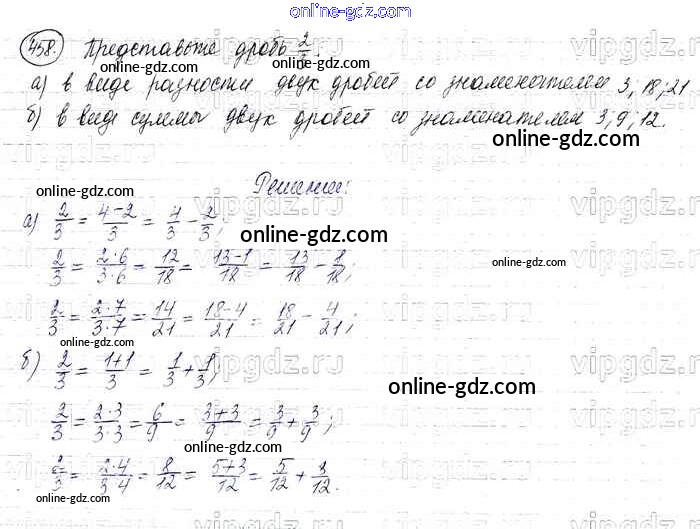 online-gdz.com
458. Представьте дробь 2/3:
online-gdz.com
а) в виде разности двух дробей со знаменателем 3; 18; 21
б) в виде суммы двух дробей со знаменателем 3, 9, 12.
online-gdz.com
vipgdz.ru
Решение:
online-gdz.com
а) 2/3 = (4-2)/3 = 4/3 - 2/3;
online-gdz.com
2/3 = (2·6)/(3·6) = 12/18 = (13-1)/18 = 13/18 - 1/18;
online-gdz.com
2/3 = (2·7)/(3·7) = 14/21 = (18-4)/21 = 18/21 - 4/21;
online-gdz.com
б) 2/3 = (1+1)/3 = 1/3 + 1/3;
online-gdz.com
2/3 = (2·3)/(3·3) = 6/9 = (3+3)/9 = 3/9 + 3/9;
online-gdz.com
2/3 = (2·4)/(3·4) = 8/12 = (5+3)/12 = 5/12 + 3/12.
online-gdz.com
vipgdz.ru